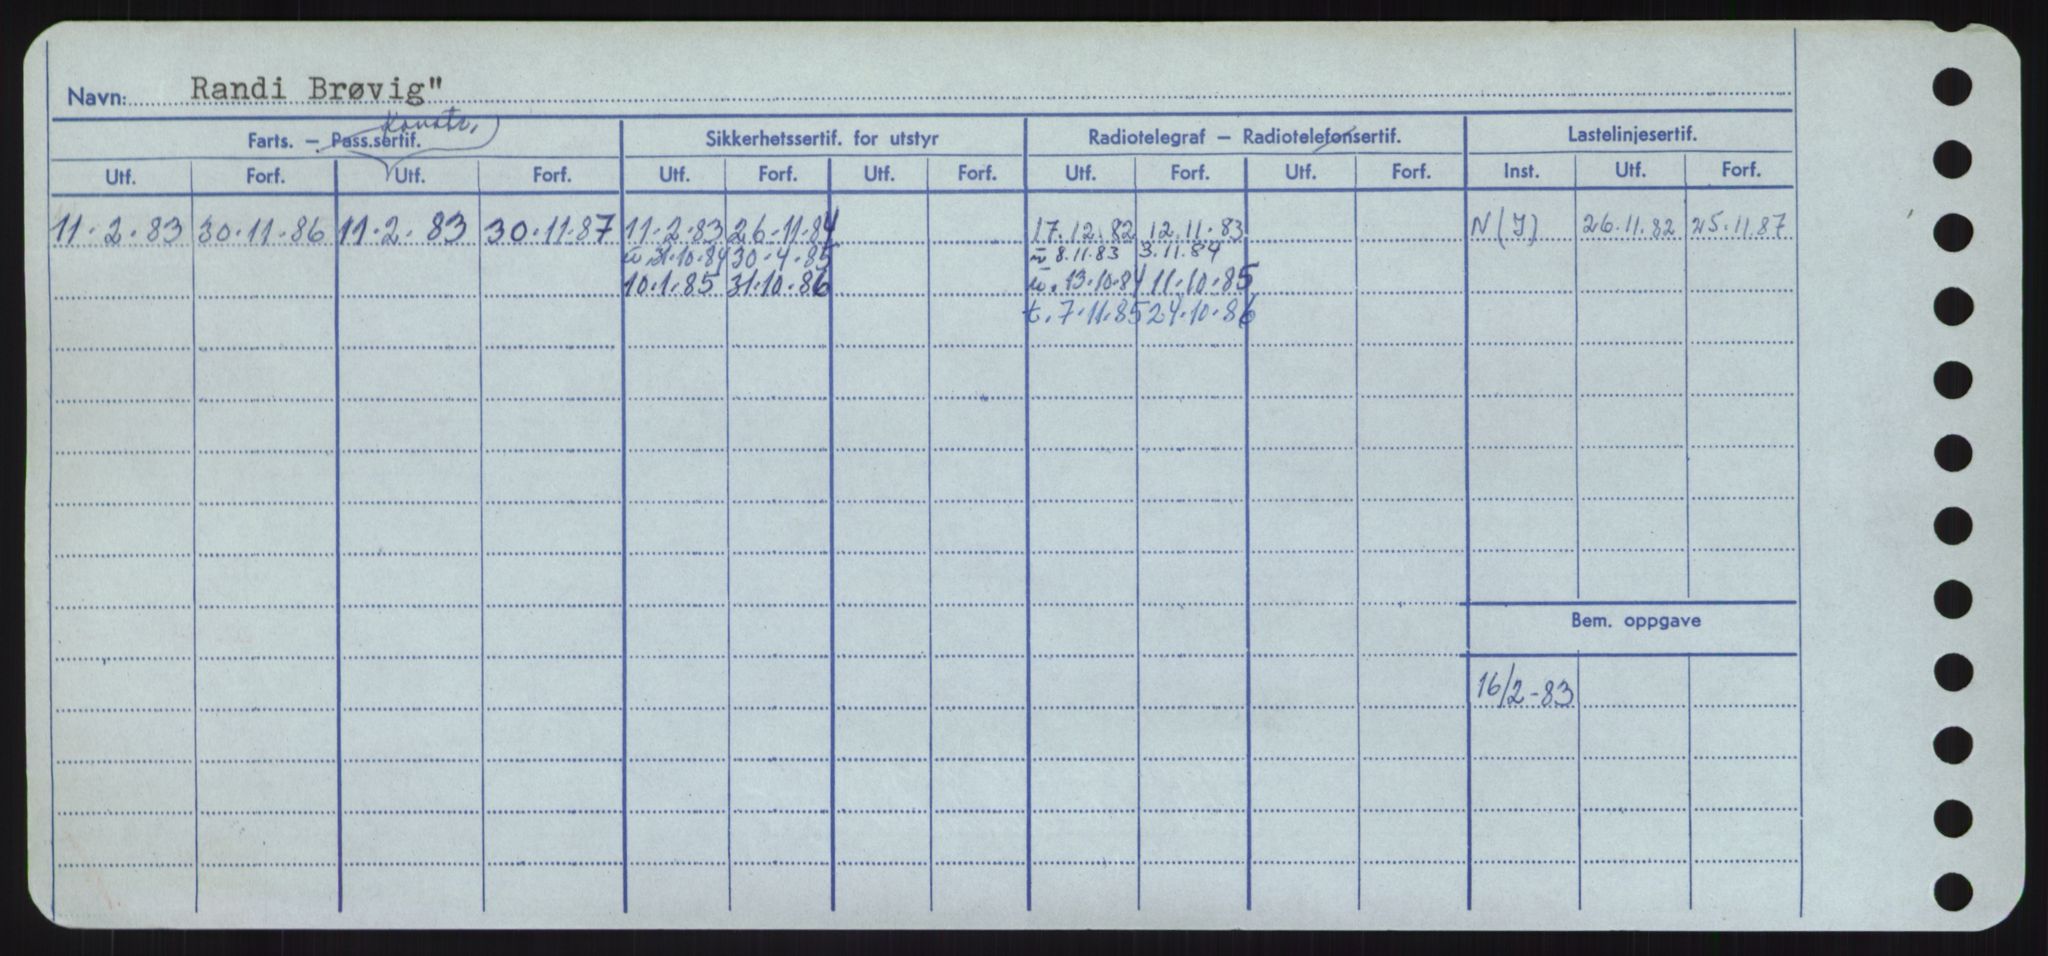 Navn: Randi Brøvig"
Konstr.
Farts. — Pass.sertif. Sikkerhetssertif. for utstyr Radiotelegraf — Radiotelefonsertif. Lastelinjesertif.
Utf. Forf. Utf. Forf. Utf. Forf. Utf. Forf. Utf. Forf. Utf. Forf. Inst. Utf. Forf.
11.2.83 30.11.86 11.2.83 30.11.87 11.2.83 26.11.84 17.12.82 12.11.83 N(I) 26.11.82 25.11.87
31.10.84 30.4.85 8.11.83 3.11.84
10.1.85 31.10.86 13.10.84 11.10.85
t. 7.11.85 24.10.86
Bem. oppgave
16/2-83